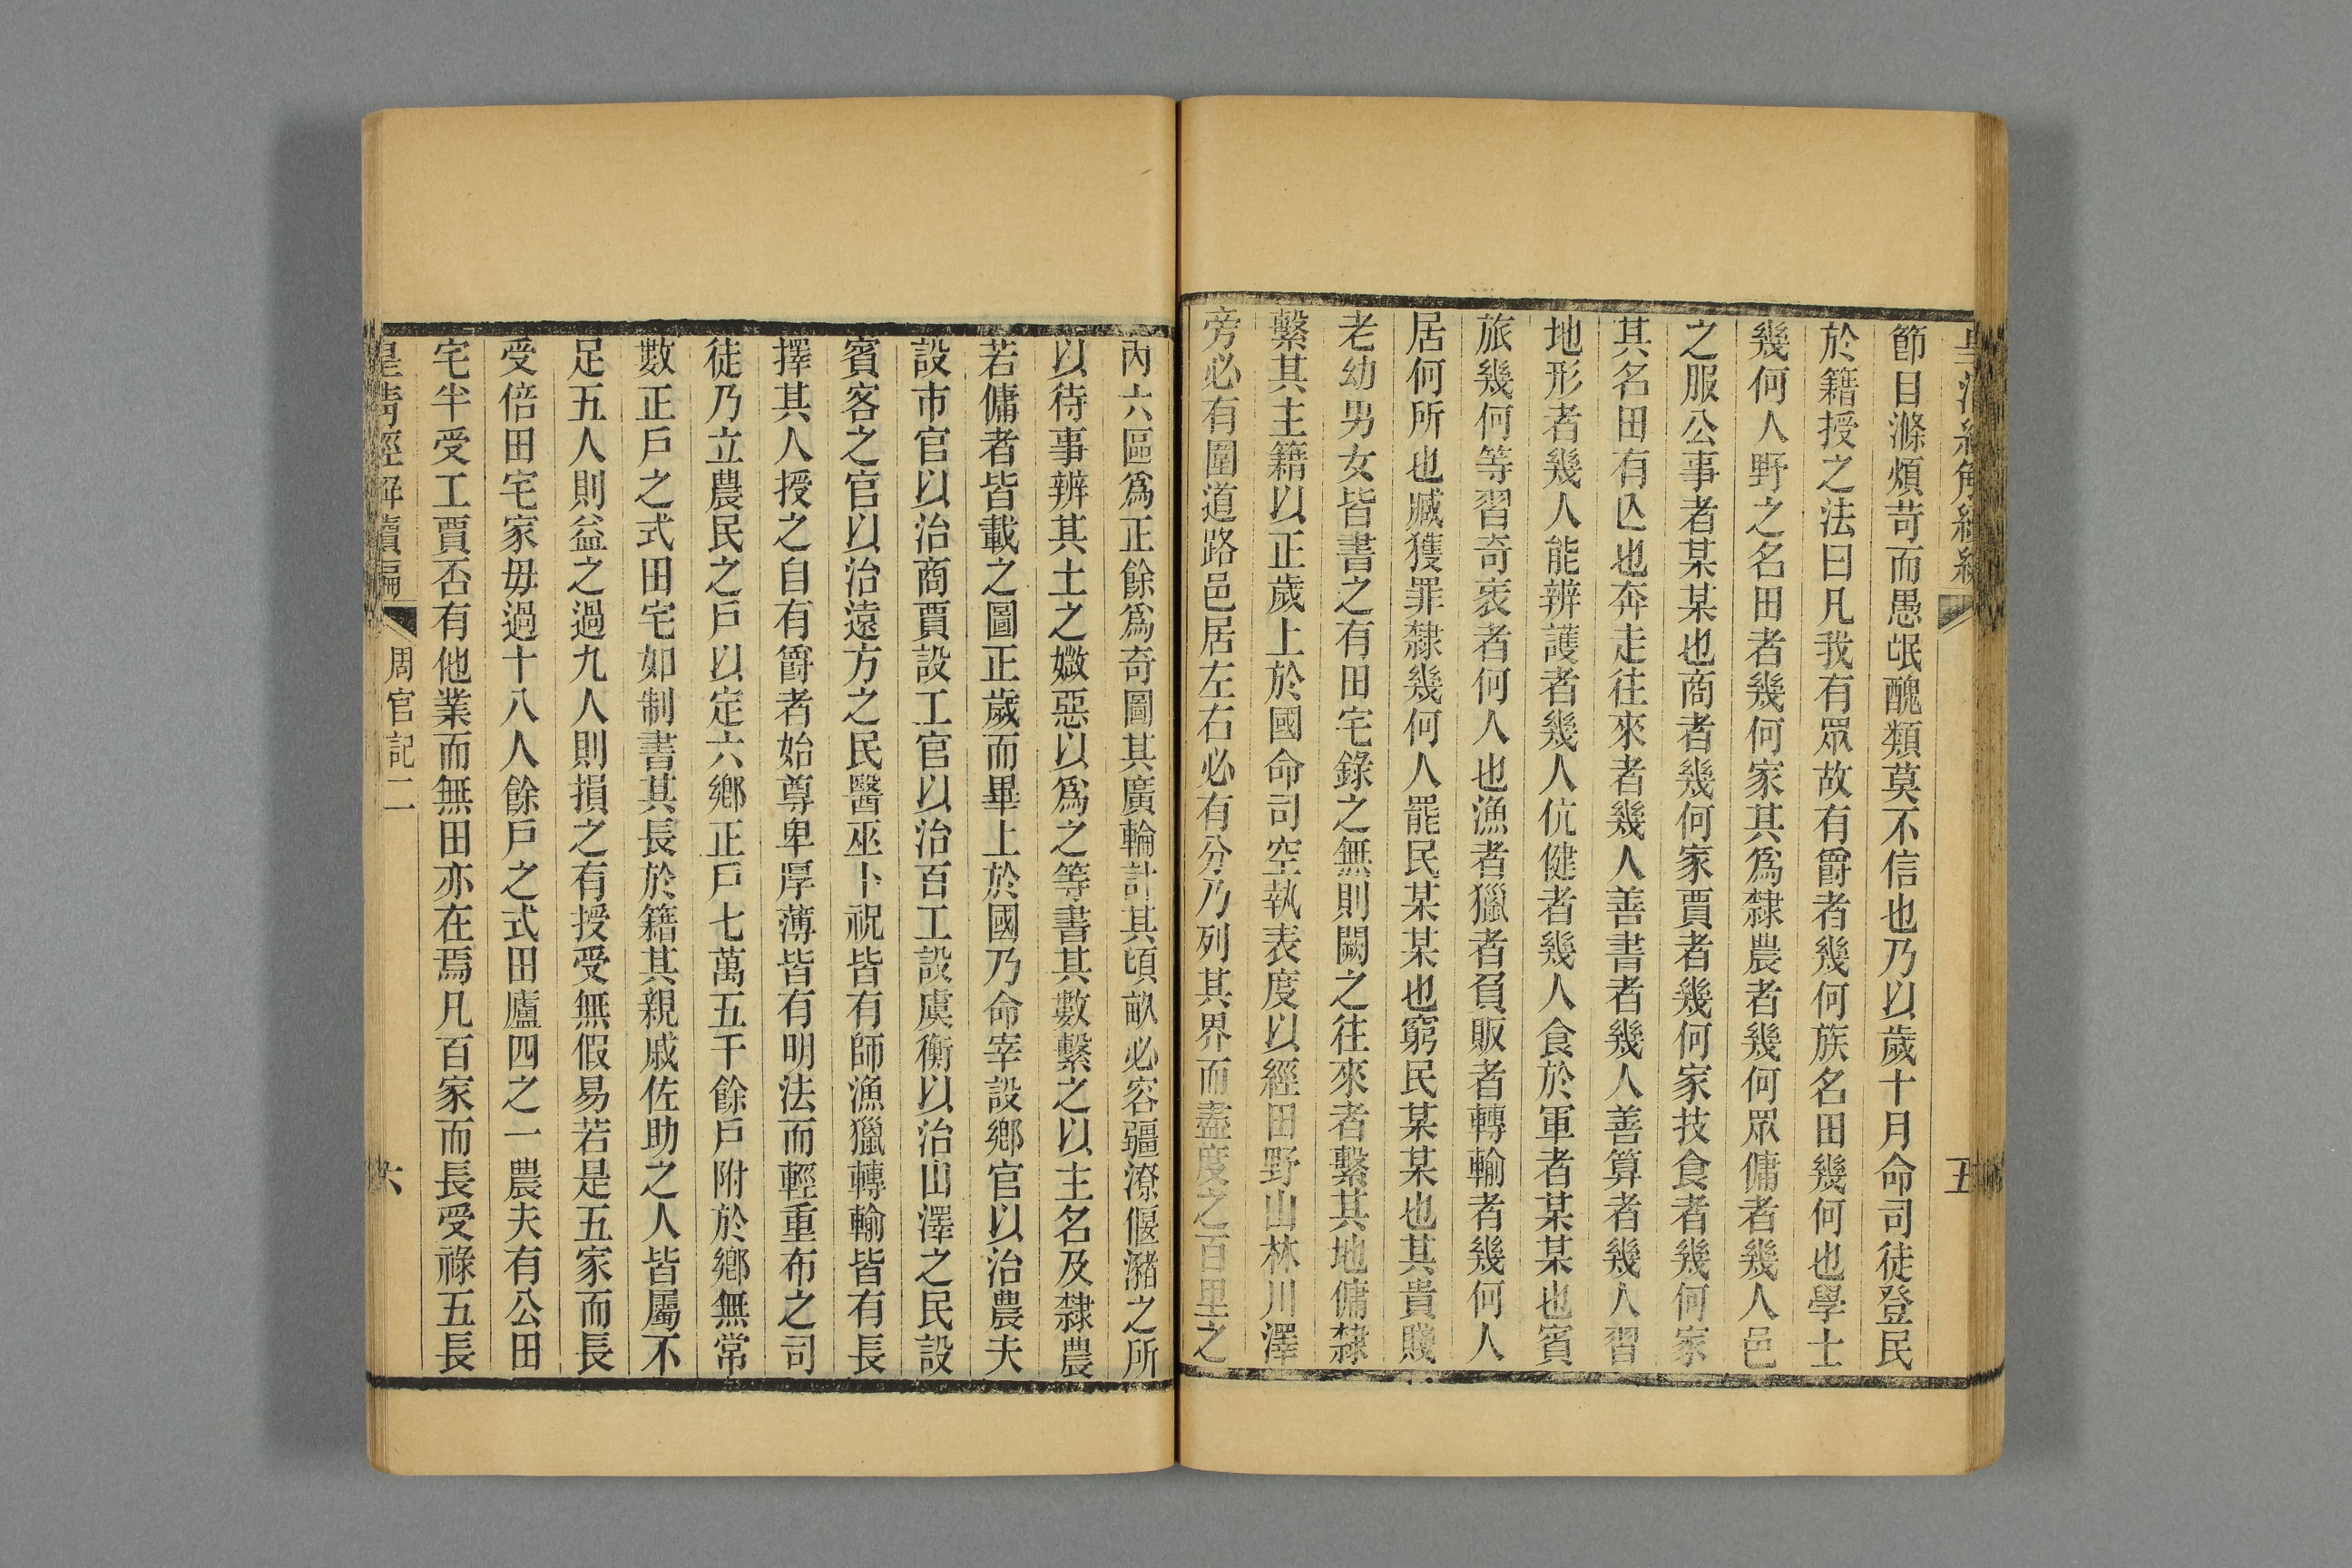 五
節目滌煩苛而愚氓醜類莫不信也乃以歲十月命司徒登民
於籍授之法曰凡我有眾故有爵者幾何族名田幾何也學士
幾何人野之名田者幾何家其爲隸農者幾何眾傭者幾人邑
之服公事者某某也商者幾何家賈者幾何家技食者幾何家
其名田有亾也奔走往來者幾人善書者幾人善算者幾人習
地形者幾人能辨護者幾人伉健者幾人食於軍者某某也賓
旅幾何等習奇衺者何人也漁者獵者負販者轉輸者幾何人
居何所也臧獲罪隸幾何人罷民某某也窮民某某也其貴賤
老幼男女皆書之有田宅錄之無則闕之往來者繫其地傭隸
繫其主籍以正歲上於國命司空執表度以經田野山林川澤
旁必有圍道路邑居左右必有分乃列其界而盡度之百里之
內六區爲正餘爲奇圖其廣輪計其頃畝必容疆潦偃瀦之所
以待事辨其土之媺惡以爲之等書其數繫之以主名及隸農
若傭者皆載之圖正歲而畢上於國乃命宰設鄉官以治農夫
設市官以治商賈設工官以治百工設虞衡以治山澤之民設
賓客之官以治遠方之民醫巫卜祝皆有師漁獵轉輸皆有長
擇其人授之自有爵者始尊卑厚薄皆有明法而輕重布之司
徒乃立農民之戶以定六鄉正戶七萬五千餘戶附於鄉無常
數正戶之式田宅如制書其長於籍其親戚佐助之人皆屬不
足五人則益之過九人則損之有授受無假易若是五家而長
受倍田宅家毋過十八人餘戶之式田廬四之一農夫有公田
宅半受工賈否有他業而無田亦在焉凡百家而長受祿五長
皇清經解續編 周官記二 六